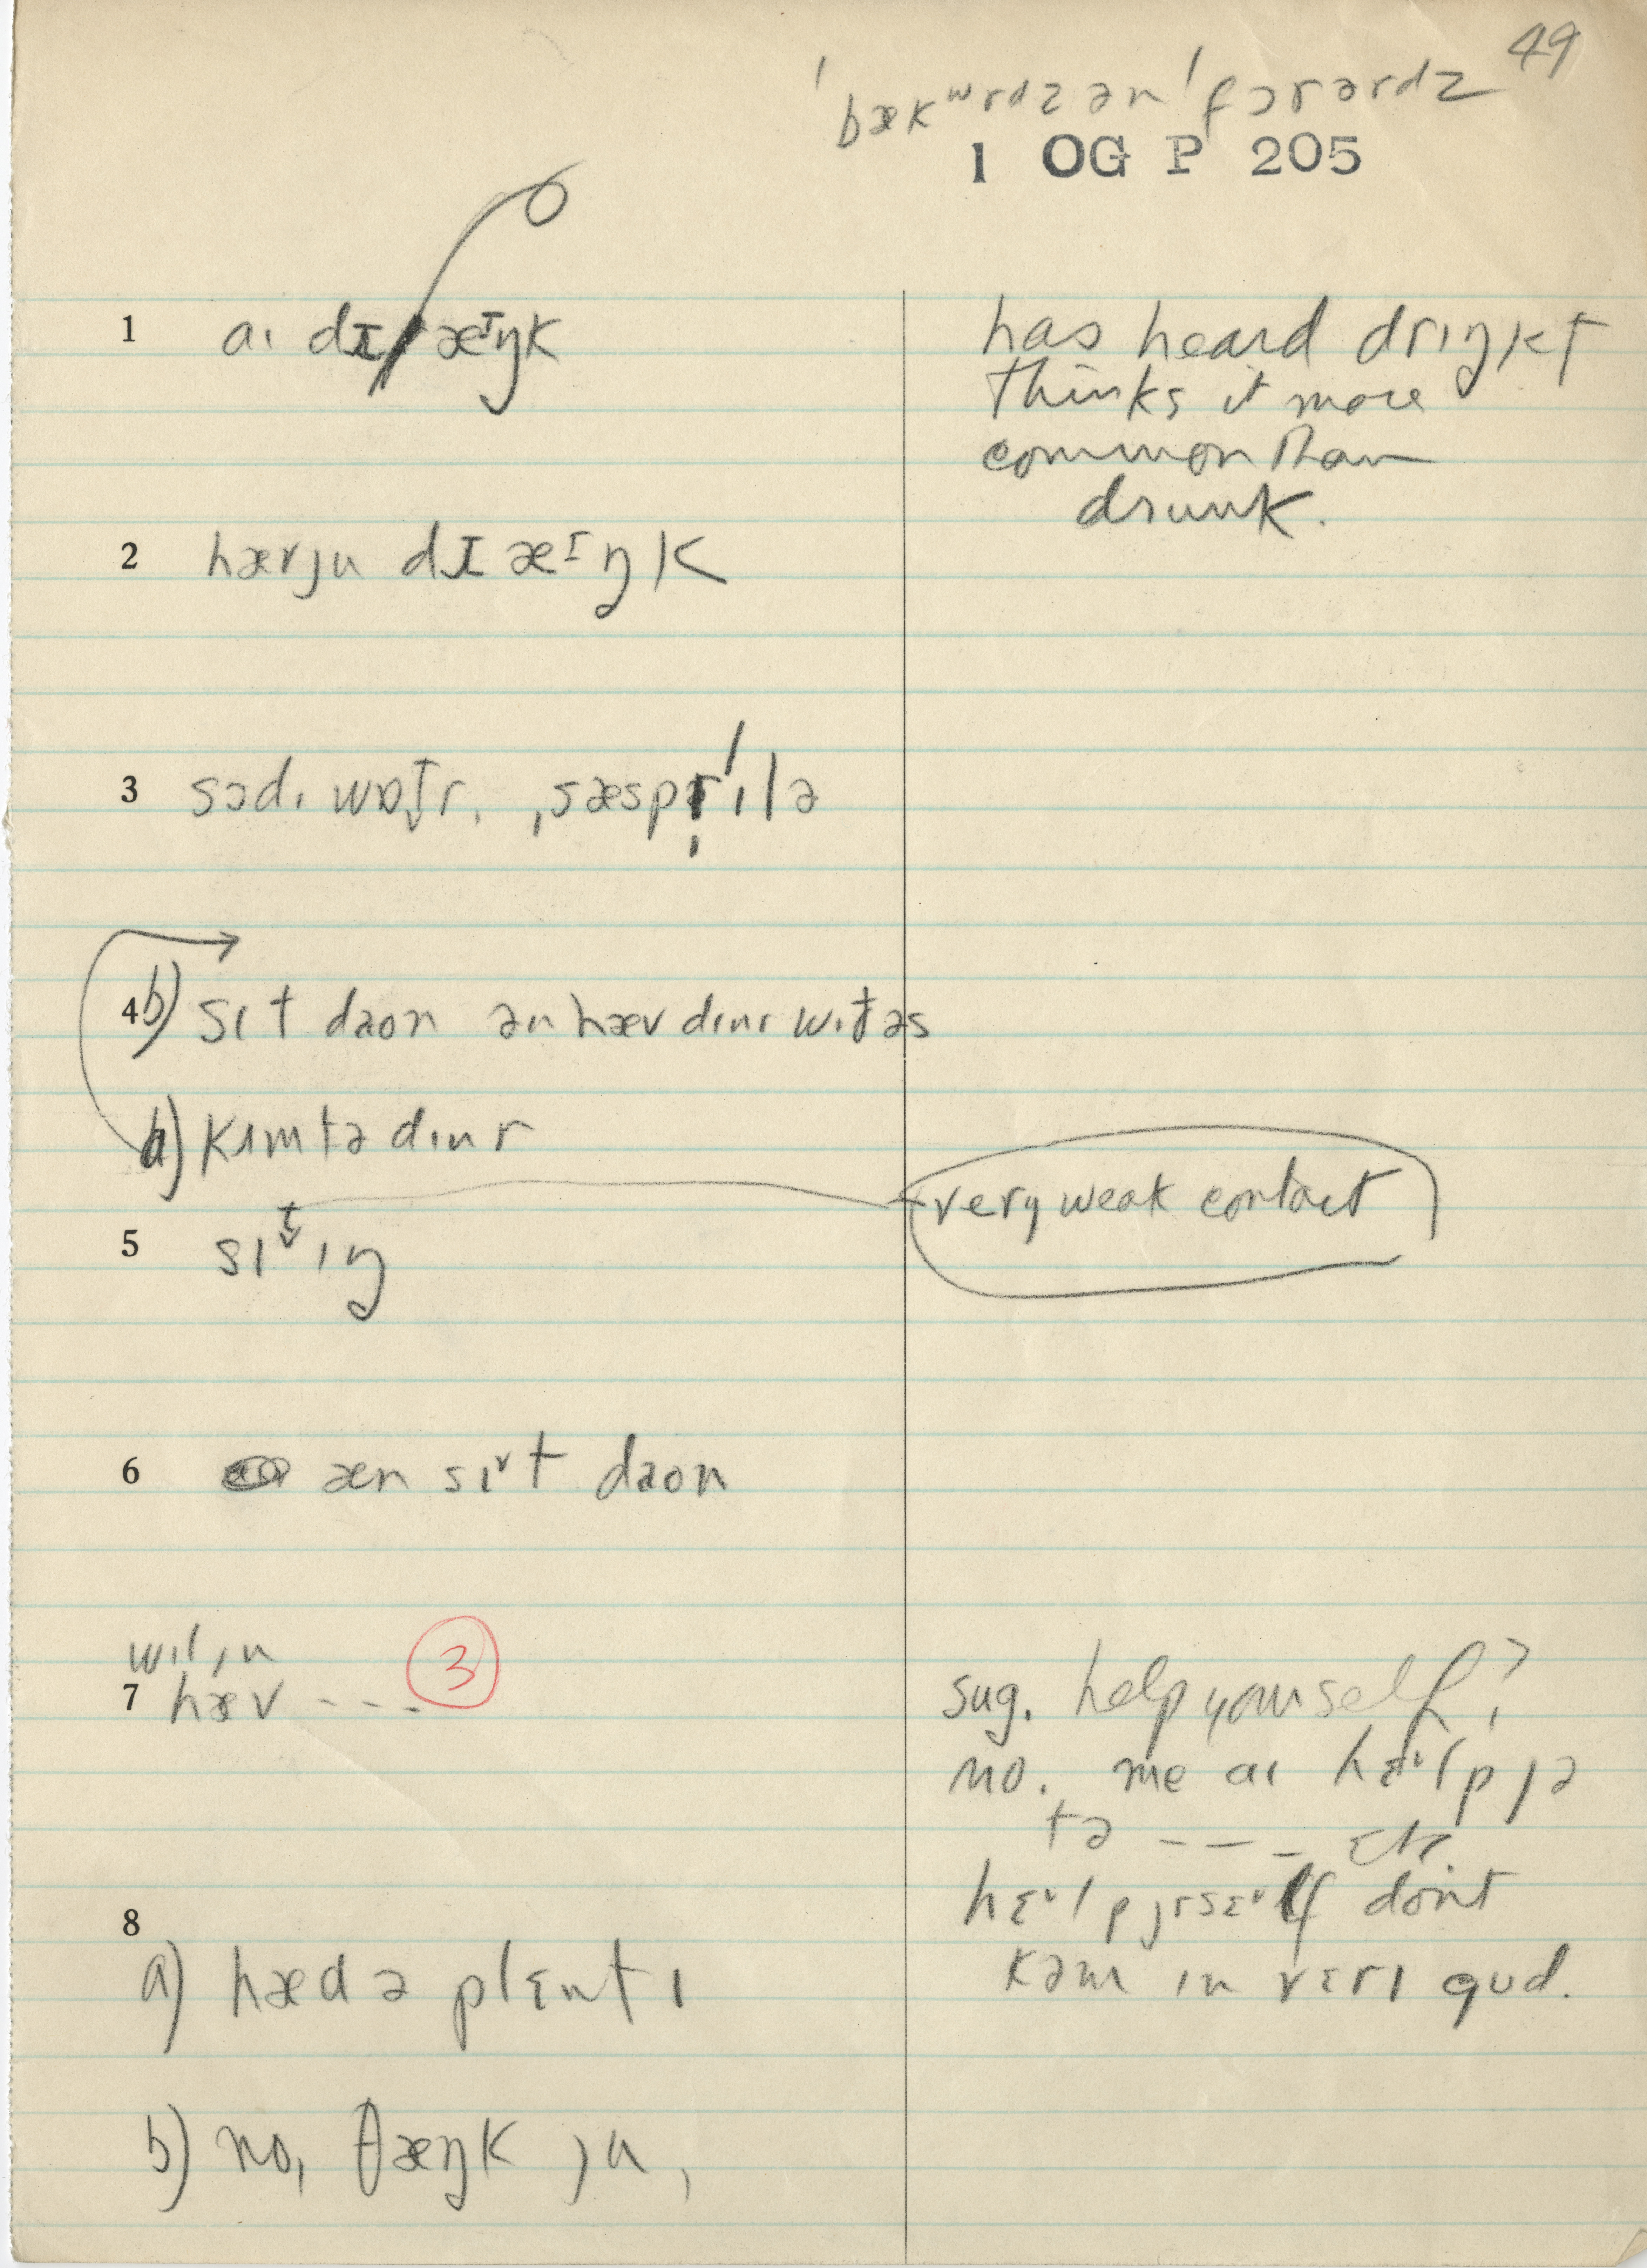 49
ˈbækʷrdz ən ˈfɔrərdz
1 OG P 205
1 aɪ dɪ æᶦŋk
has heard drɪŋkt
thinks it more
common than
drunk.
2 hævju dɪ æᶦŋk
3 sodɪ wɒt̬r. ˌsæspr̩ˈɪlə
4 b) sɪt daon ən hæv dɪnɪ wɪt̬əs
a) kʌmtədɪnr
very weak contact
5 sɪt̬ɪŋ
6 æn sɪᵛt daon
wɪlɪn
7 hæv - - - 3
sug. help yourself?
no. me aɪ hɛᵛlp jə
tə - - - - etc.
hɛᵛlpjrsɛᵛlf don't
kəm ɪn vɛrɪ gud.
8
a) hæd ə plɛntɪ
b) no, θæŋk ju,